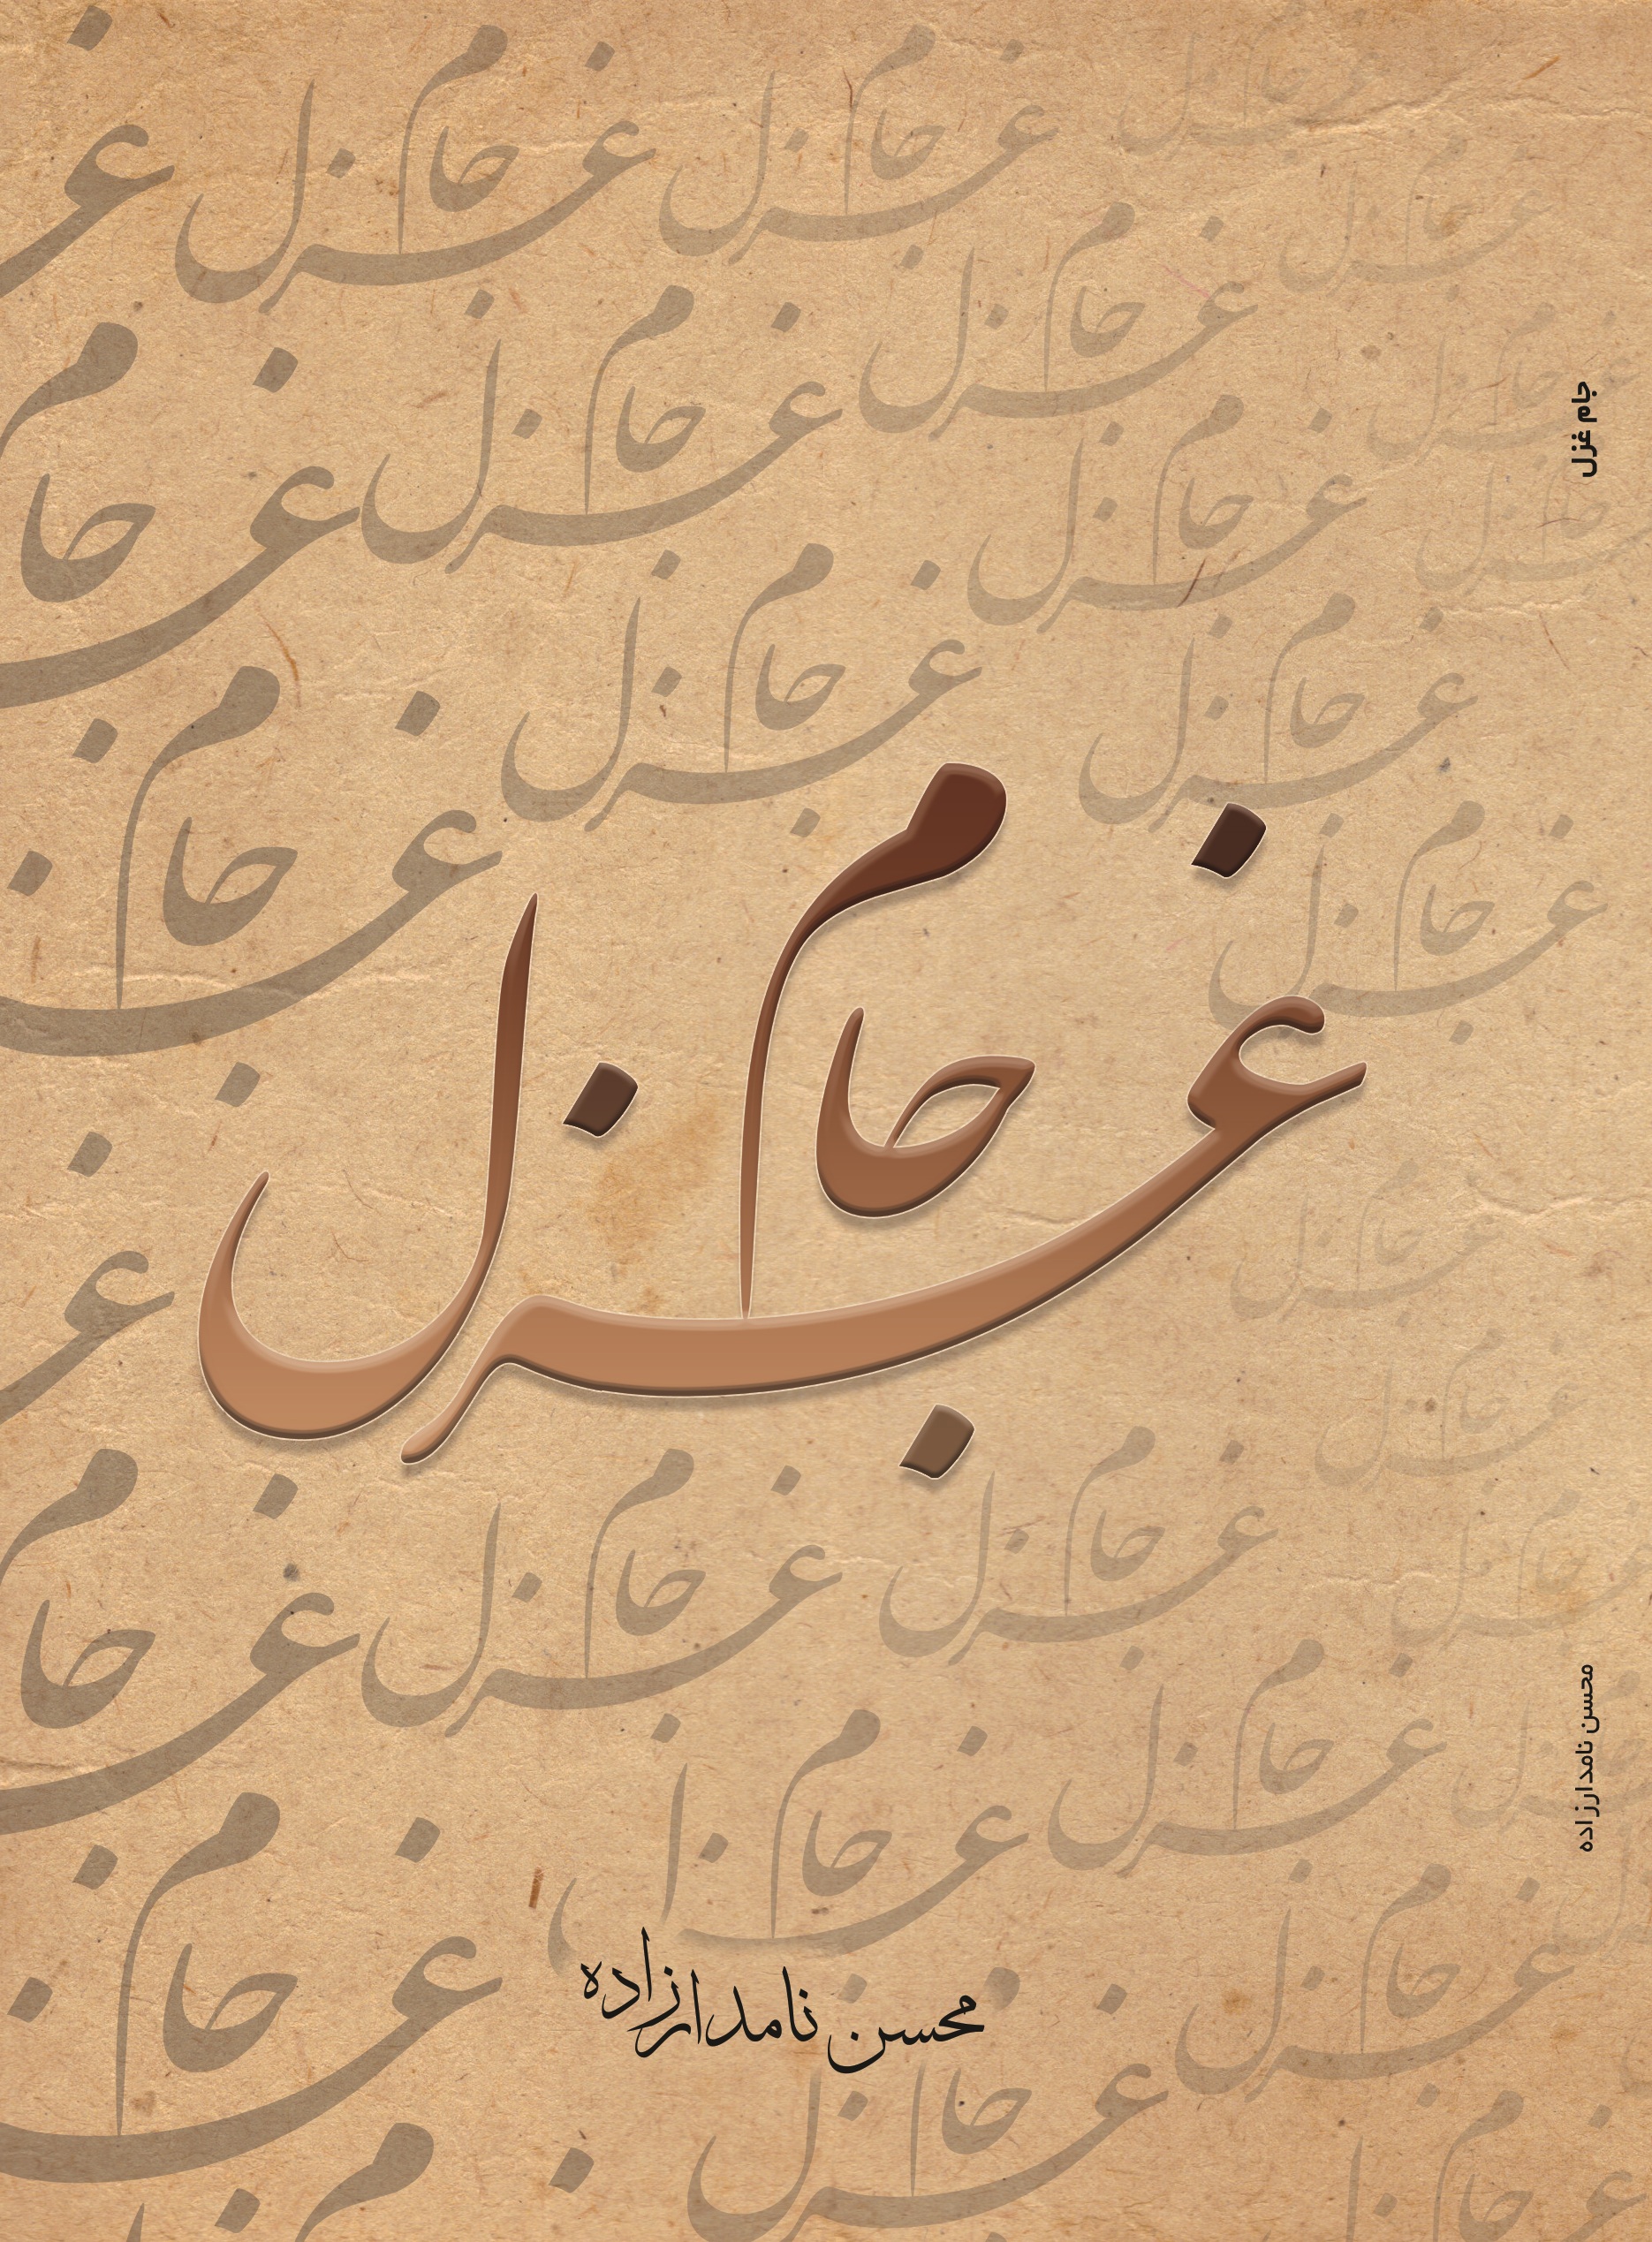 جام غزل
محسن نامدارزاده
جام غزل
محسن نامدارزاده